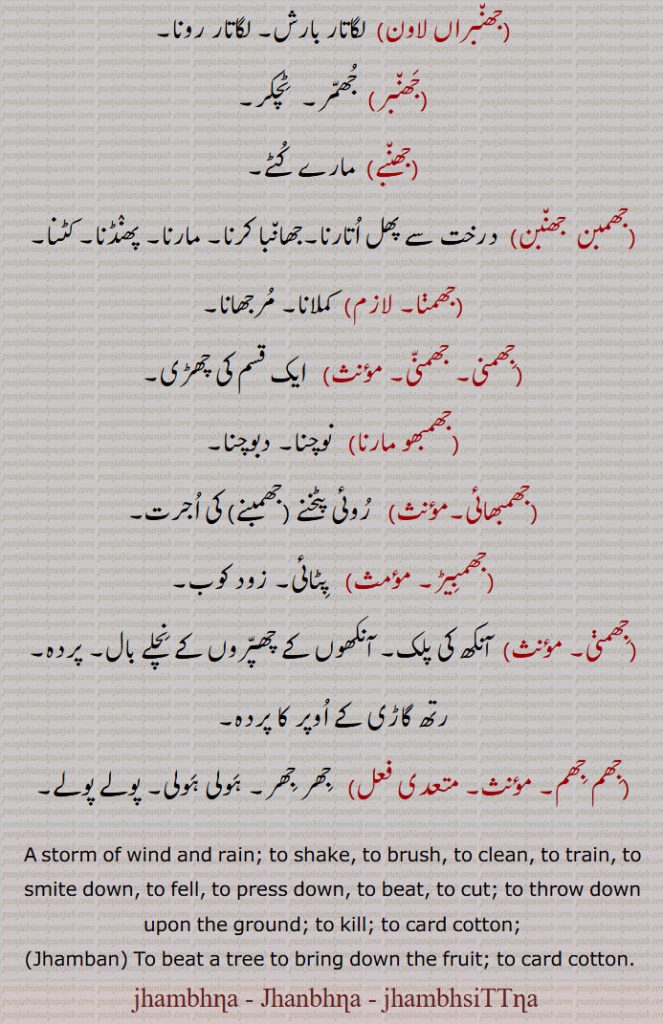 (جھنّبراں لاون) لگاتار بارش۔ لگاتار رونا۔
(جَھنّبر) جُھمّر۔ ٹِچکر۔
(جھنّبے) مارے کُٹے۔
(جھمبن جھنّبن) درخت سے پھل اُتارنا۔جھانّبا کرنا۔ مارنا۔ پھنْڈنا۔ کٹنا۔
(جھمنا۔ لازم) کملانا۔ مُرجھانا۔
(جِھمنی۔ جھمنّی۔ مؤنث) ایک قسم کی چھڑی۔
(جھمبھو مارنا) نوچنا۔ دبوچنا۔
(جھمبھائی۔مؤنث) رُوئی پٹخنے (جھمبنے) کی اُجرت۔
(جھمبِیڑ۔ مؤمث) پِٹائی۔ زود کوب۔
(جِھمنی۔ مؤنث) آنکھ کی پلک۔ آنکھوں کے چھپّروں کے نِچلے بال۔ پردہ۔
رتھ گاڑی کے اُوپر کا پردہ۔
(جِھم جِھم۔ مؤنث۔ متعدی فعل) جِھر جِھر۔ ہَولی ہَولی۔ پولے پولے۔
A storm of wind and rain; to shake, to brush, to clean, to train, to
smite down, to fell, to press down, to beat, to cut; to throw down
upon the ground; to kill; to card cotton;
(Jhamban) To beat a tree to bring down the fruit; to card cotton.
jhambhɳa - Jhanbhɳa - jhambhsiTTɳa